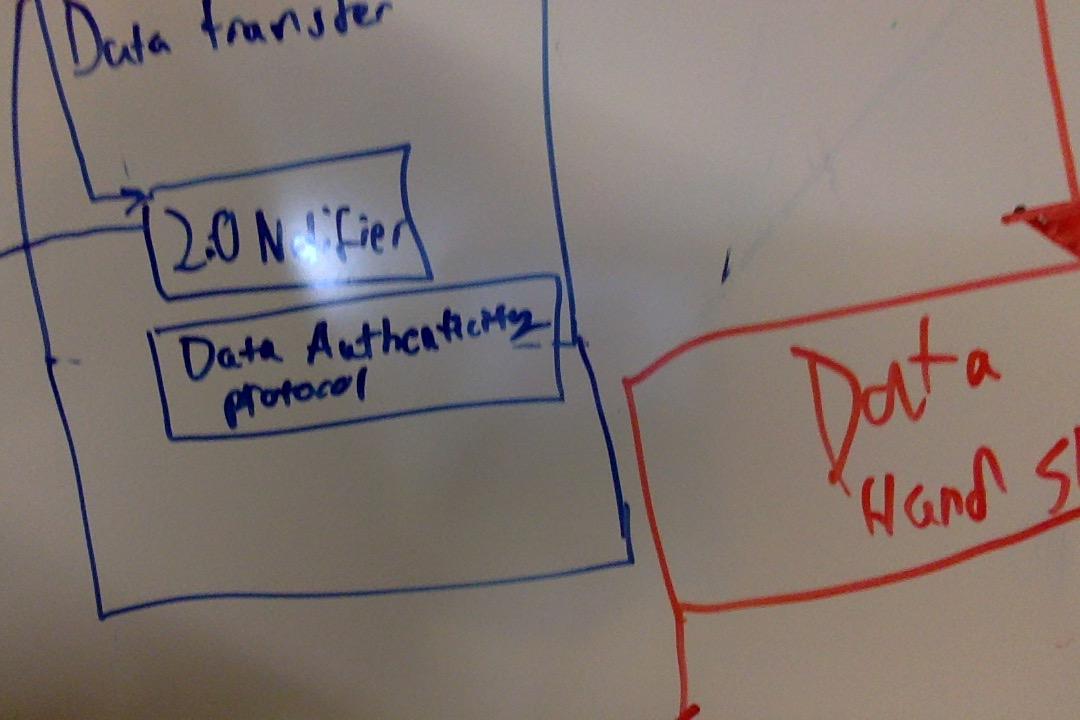 Data transfer
2.0 Notifier
Data Authenticity
protocol
Data
Hand